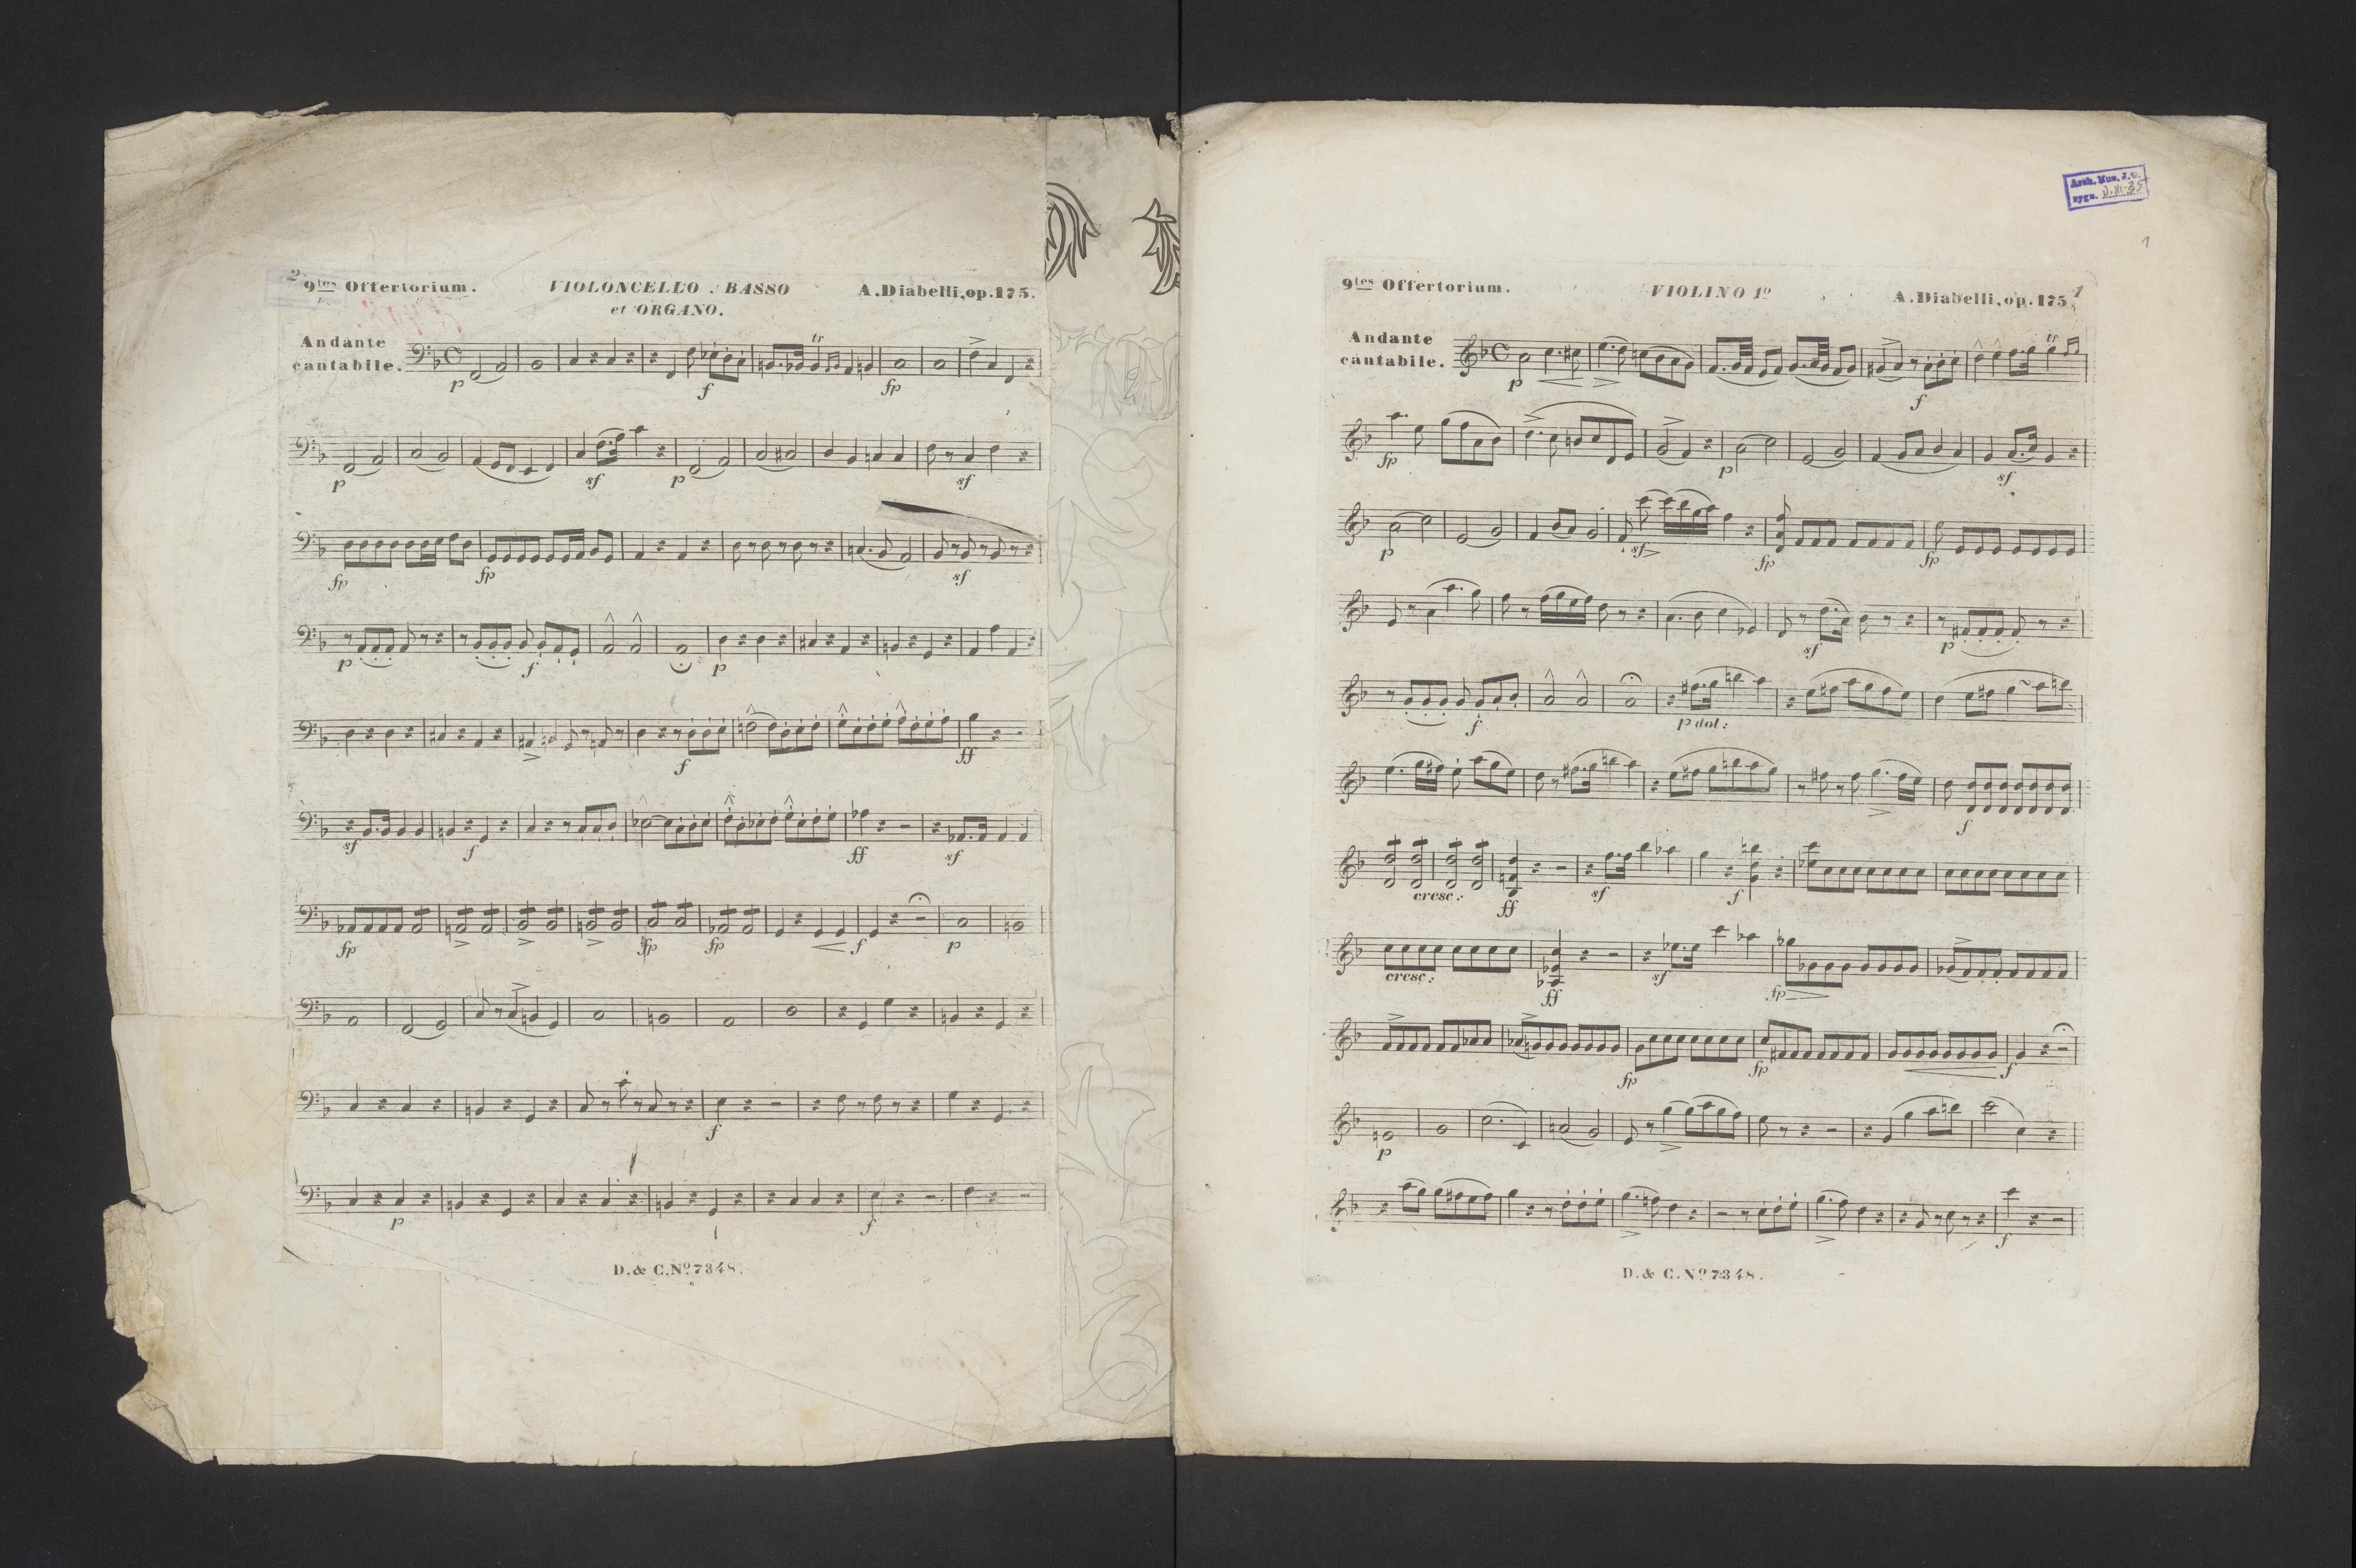 2
9tes Offertorium. VIOLONCELLO. BASSO A. Diabelli, op. 175.
et ORGANO.
Andante
cantabile.
tr
p f fp
p sf p sf
fp fp sf
p f p
f ff
sf f ff sf
fp fp fp f p
f
p f
D. & C. No 7348.
Arch. Muz. J. G.
sygn. D.III-35
1
9tes Offertorium. VIOLINO 1o A. Diabelli, op. 175. 1
Andante
cantabile.
tr
p f
fp p sf
p sf fp fp
sf p
f p dol:
f
cresc: ff sf f
cresc: ff sf fp
fp fp f
p
f
D. & C. No 7348.